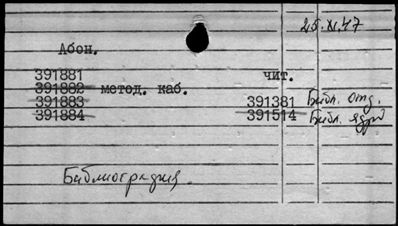 25.XI.47
Абон.
391881 чит.
391882 метод. каб.
391883 391381 Библ. отд.
391884 391514 Библ. ядро
Библиография.